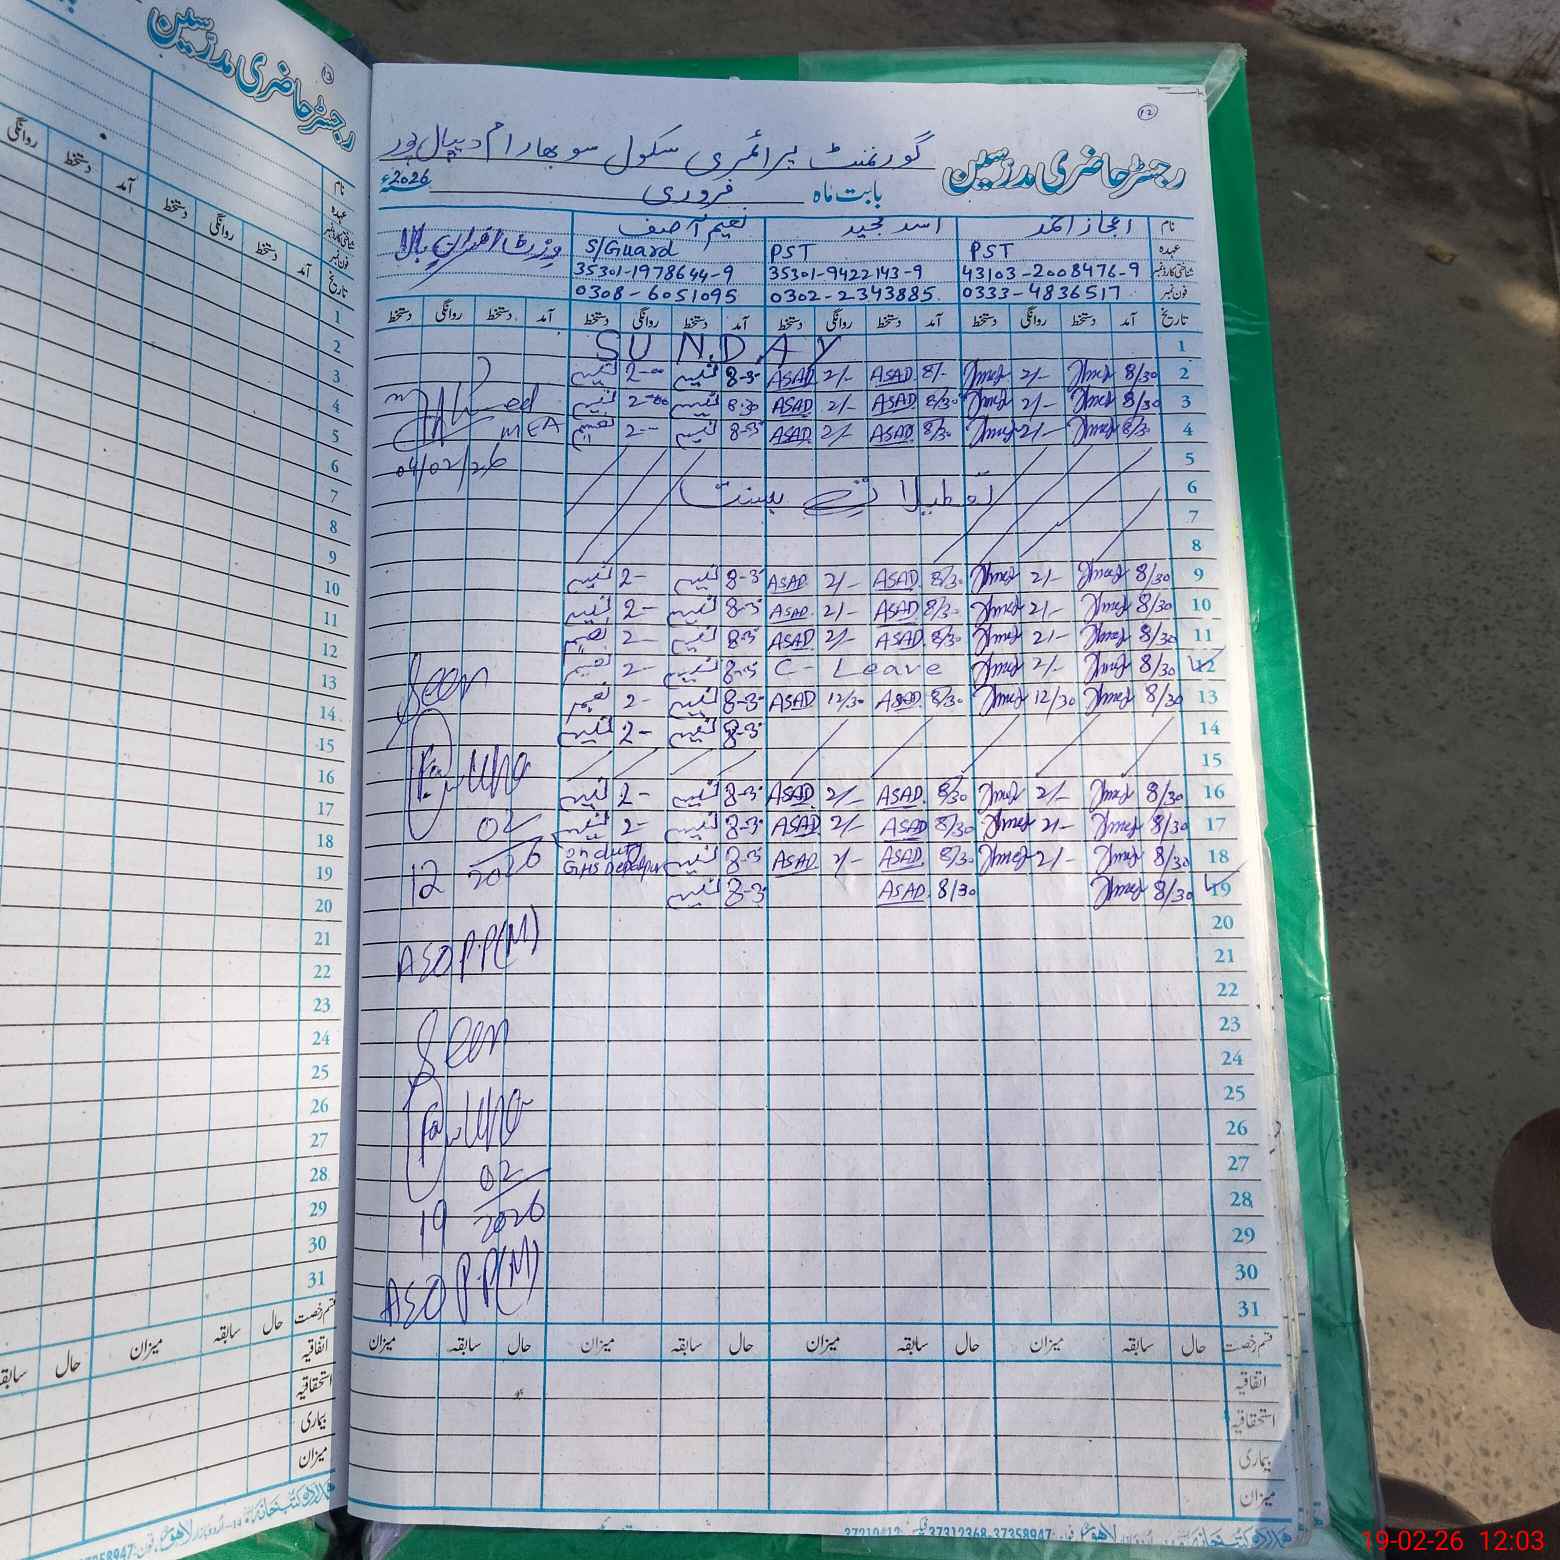 رجسٹر حاضری مدرسین
گورنمنٹ پرائمری سکول سوبھارام دیپالپور
بابت ماہ فروری 2026ء
نام اعجاز احمد اسد مجید نعیم آصف وزٹ افسران بالا
عہدہ PST PST S/Guard
شناختی کارڈ نمبر 43103-2008476-9 35301-9422143-9 35301-1978644-9
فون نمبر 0333-4836517 0302-2343885 0308-6051095
تاریخ آمد دستخط روانگی دستخط آمد دستخط روانگی دستخط آمد دستخط روانگی دستخط آمد دستخط روانگی دستخط
1 SUNDAY
2 8/30 2/- 8/- ASAD 2/- ASAD 8-3 نعیم 2-00 نعیم
3 8/30 2/- 8/30 ASAD 2/- ASAD 8-30 نعیم 2-00 نعیم
4 8/30 2/- 8/30 ASAD 2/- ASAD 8-3 نعیم 2-- نعیم MEA
5 04/02/26
6 تعطیلات بسنت
7
8
9 8/30 2/- 8/30 ASAD 2/- ASAD 8-3 نعیم 2- نعیم
10 8/30 2/- 8/30 ASAD 2/- ASAD 8-3 نعیم 2- نعیم
11 8/30 2/- 8/30 ASAD 2/- ASAD 8-3 نعیم 2- نعیم
12 8/30 2/- C-Leave 8-3 نعیم 2- نعیم Seen
13 8/30 12/30 8/30 ASAD 12/30 ASAD 8-3 نعیم 2- نعیم
14 8-3 نعیم 2- نعیم
15
16 8/30 2/- 8/30 ASAD 2/- ASAD 8-3 نعیم 2- نعیم
17 8/30 2/- 8/30 ASAD 2/- ASAD 8-3 نعیم 2- نعیم
18 8/30 2/- 8/30 ASAD 2/- ASAD 8-3 نعیم on duty GHS Depalpur
19 8/30 8/30 ASAD 8-3 نعیم 12 02/2026
20
21 ASO P.P(M)
22
23 Seen
24
25
26
27
28 19 02/2026
29
30 ASO P.P(M)
31
قسم رخصت حال سابقہ میزان حال سابقہ میزان حال سابقہ میزان حال سابقہ میزان
اتفاقیہ
استحقاقیہ
بیماری
میزان
37312368-37358947
رجسٹر حاضری مدرسین
نام
عہدہ
شناختی کارڈ نمبر
فون نمبر
تاریخ آمد دستخط روانگی دستخط آمد دستخط روانگی
1
2
3
4
5
6
7
8
9
10
11
12
13
14
15
16
17
18
19
20
21
22
23
24
25
26
27
28
29
30
31
قسم رخصت حال سابقہ میزان حال سابقہ
اتفاقیہ
استحقاقیہ
بیماری
میزان
19-02-26 12:03